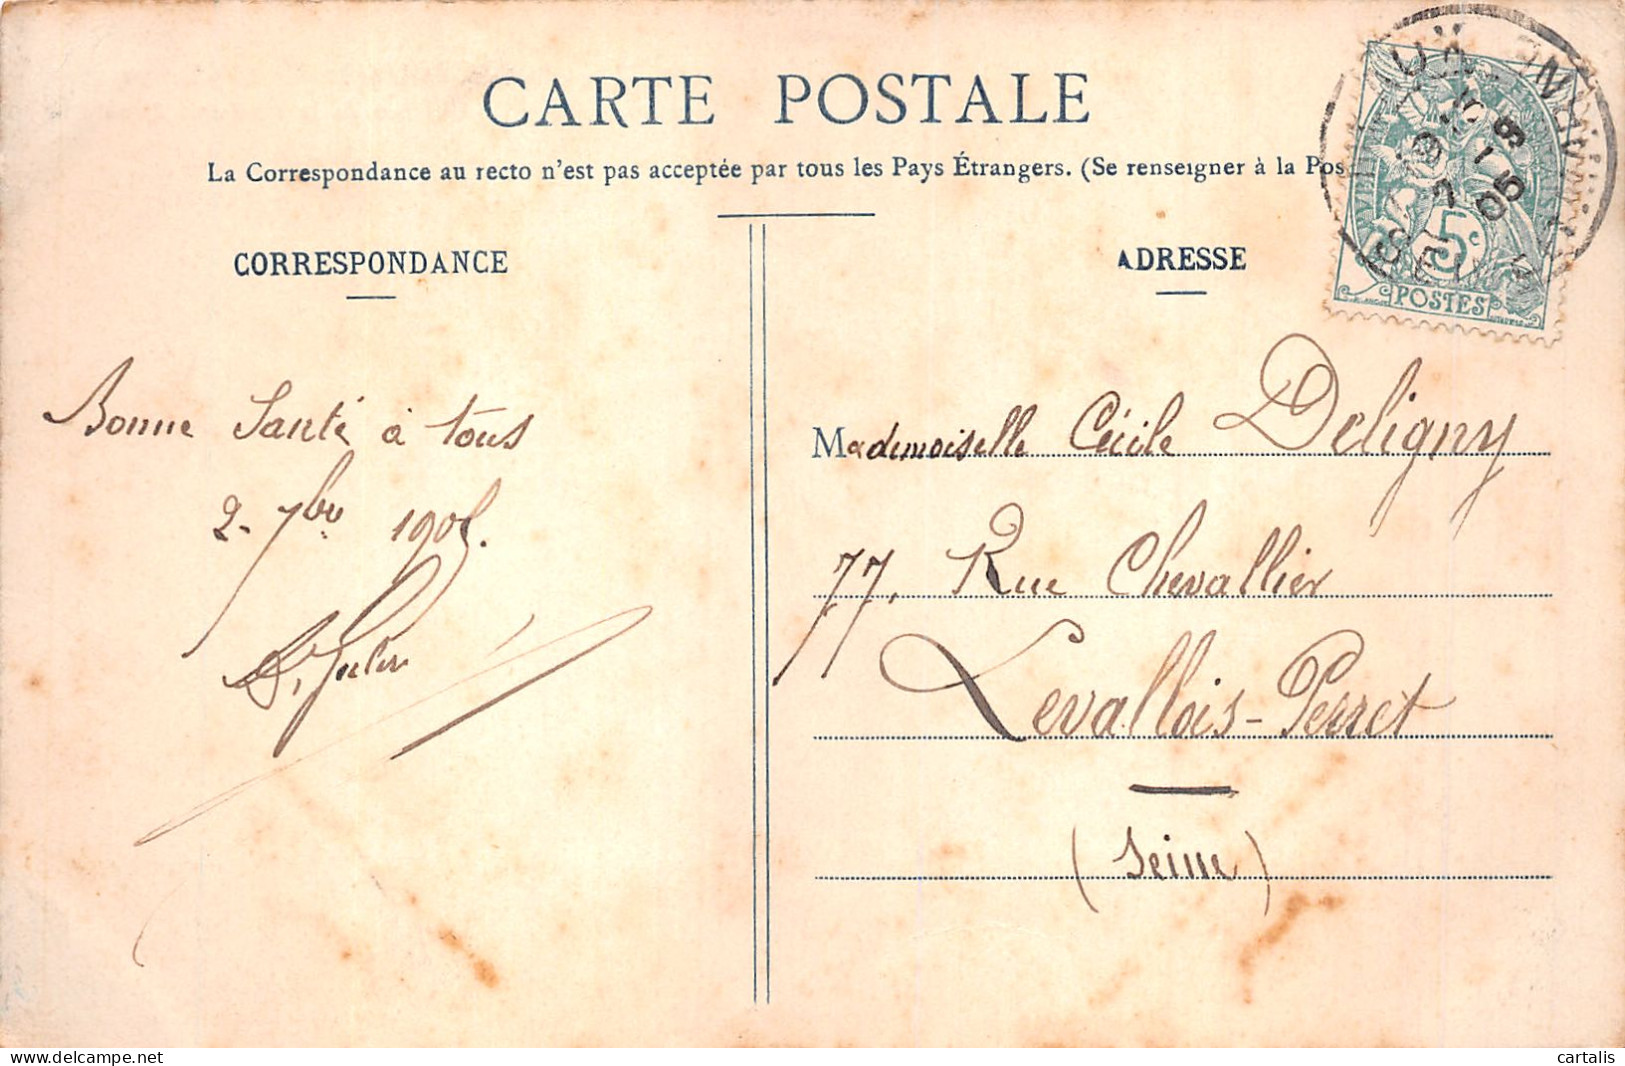 CARTE POSTALE
La Correspondance au recto n'est pas acceptée par tous les Pays Étrangers. (Se renseigner à la Pos
CORRESPONDANCE
ADRESSE
5c
POSTES
05
Bonne Santé à tous
2- 7bre 1905.
Mademoiselle Cécile Deligny
77, Rue Chevallier
Levallois-Perret
(Seine)
delcampe.net
cartalis